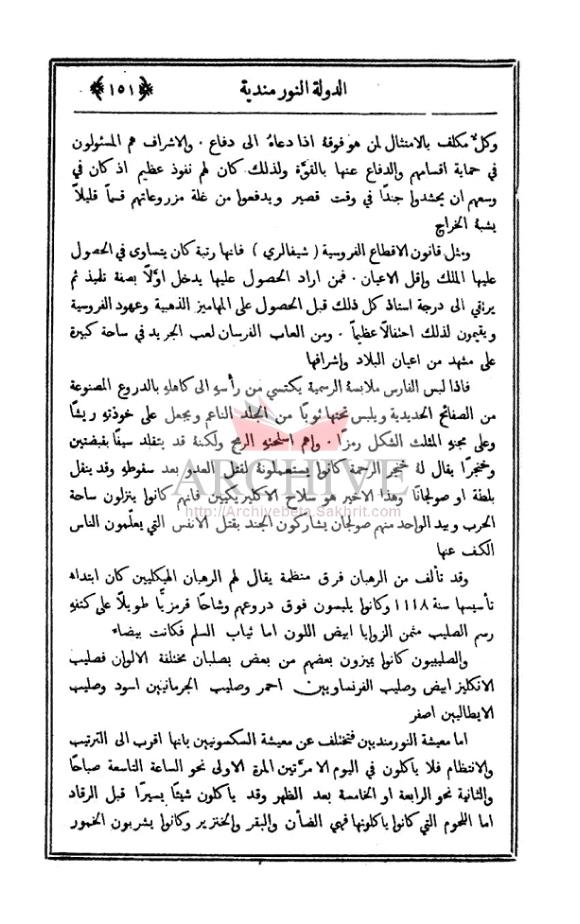 الدولة النورمندية
﴿١٥١﴾
وكلٌ مكلف بالامتثال لمن هو فوقهُ اذا دعاهُ الى دفاع . والاشراف هم المسئولون
في حماية اقسامهم والدفاع عنها بالقوَّة ولذلك كان لهم نفوذ عظيم اذ كان في
وسعهم ان يحشدوا جندًا في وقت قصير ويدفعوا من غلة مزروعاتهم قسماً قليلاً
يشبهُ الخراج
ومثل قانون الاقطاع الفروسية ( شيفالري ) فانها رتبة كان يتساوى في الحصول
عليها الملك واقل الاعيان . فمن اراد الحصول عليها يدخل اوَّلاً بصفة تلميذ ثم
يرتقي الى درجة استاذ كل ذلك قبل الحصول على المهاميز الذهبية وعهود الفروسية
ويقيمون لذلك احتفالاً عظيماً . ومن العاب الفرسان لعب الجريد في ساحة كبيرة
على مشهد من اعيان البلاد واشرافها
فاذا لبس الفارس ملابسهُ الرسمية يكتسي من رأسهِ الى كاهلهِ بالدروع المصنوعة
من الصفائح الحديدية ويلبس تحتها ثوبًا من الجلد الناعم ويجعل على خوذتهِ ريشًا
وعلى مجنهِ المثلث الشكل رمزًا . واهم اسلحتهِ الرمح ولكنهُ قد يتقلد سيفًا بقبضتين
وخنجرًا يقال لهُ خنجر الرحمة كانوا يستعملونهُ لقتل العدو بعد سقوطهِ وقد ينقل
بلطة او صولجانًا وهذا الاخير هو سلاح الاكليريكيين فانهم كانوا ينزلون ساحة
الحرب وبيد الواحد منهم صولجان يشاركون الجند بقتل الانفس التي يعلّمون الناس
الكف عنها
وقد تألف من الرهبان فرق منظمة يقال لهم الرهبان الهيكليين كان ابتداء
تأسيسها سنة ١١١٨ وكانوا يلبسون فوق دروعهم وشاحًا قرمزيًّا طويلاً على كتفهِ
رسم الصليب مثمن الزوايا ابيض اللون اما ثياب السلم فكانت بيضاء
والصليبيون كانوا يميزون بعضهم من بعض بصلبان مختلفة الالوان فصليب
الانكليز ابيض وصليب الفرنساويين احمر وصليب الجرمانيين اسود وصليب
الايطاليين اصفر
اما معيشة النورمنديين فتختلف عن معيشة السكسونيين بانها اقرب الى الترتيب
والانتظام فلا يأكلون في اليوم الا مرَّتين المرة الاولى نحو الساعة التاسعة صباحًا
والثانية نحو الرابعة او الخامسة بعد الظهر وقد يأكلون شيئًا يسيرًا قبل الرقاد
اما اللحوم التي كانوا ياكلونها فهي الضأن والبقر والخنزير وكانوا يشربون الخمور
ARCHIVE
http://Archivebeta.Sakhrit.com